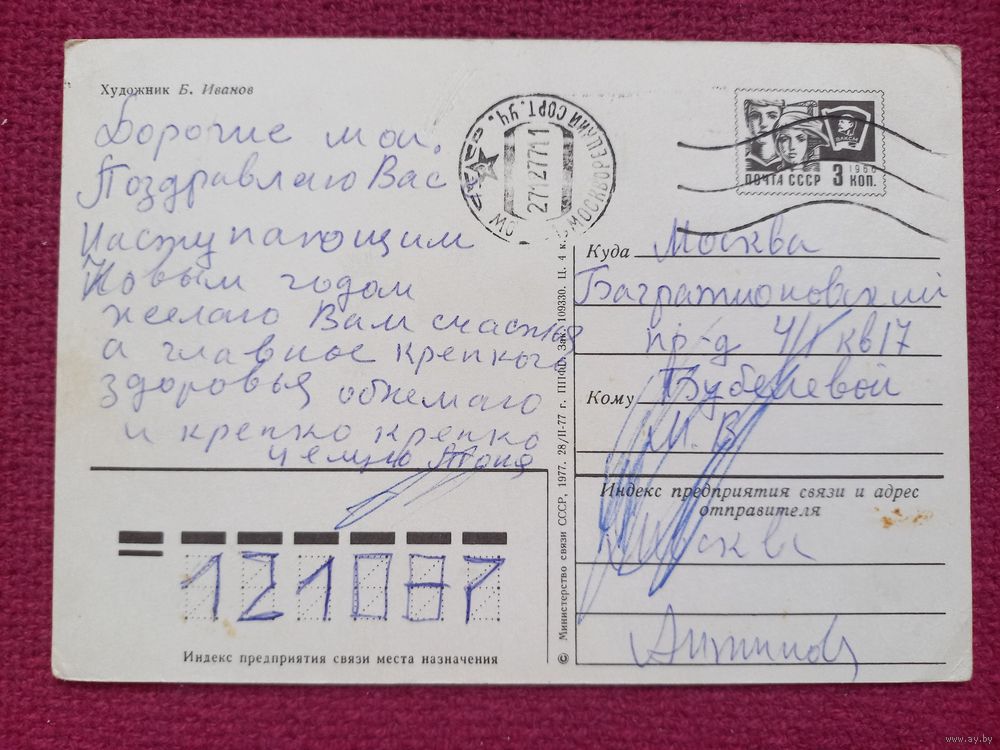 Художник Б. Иванов
Дорогие мои.
Поздравлаю Вас
Наступающим
Новым годом
желаю Вам счастья
а главное крепкого
здоровья обнемаю
и крепко крепко
целую Тоня
121087
Индекс предприятия связи места назначения
© Министерство связи СССР, 1977. 28/II-77 г. ППФГ. Зак. 109330. Ц. 4 к.
МОСКВОРЕЦКИЙ СОРТ. УЧ.
27127711
ВЛКСМ
1966
ПОЧТА СССР 3 КОП.
Куда Москва
Багратионовский
пр-д 4/1 кв 17
Кому Бубелевой
М. В
Индекс предприятия связи и адрес
отправителя
Москва
www.ay.by